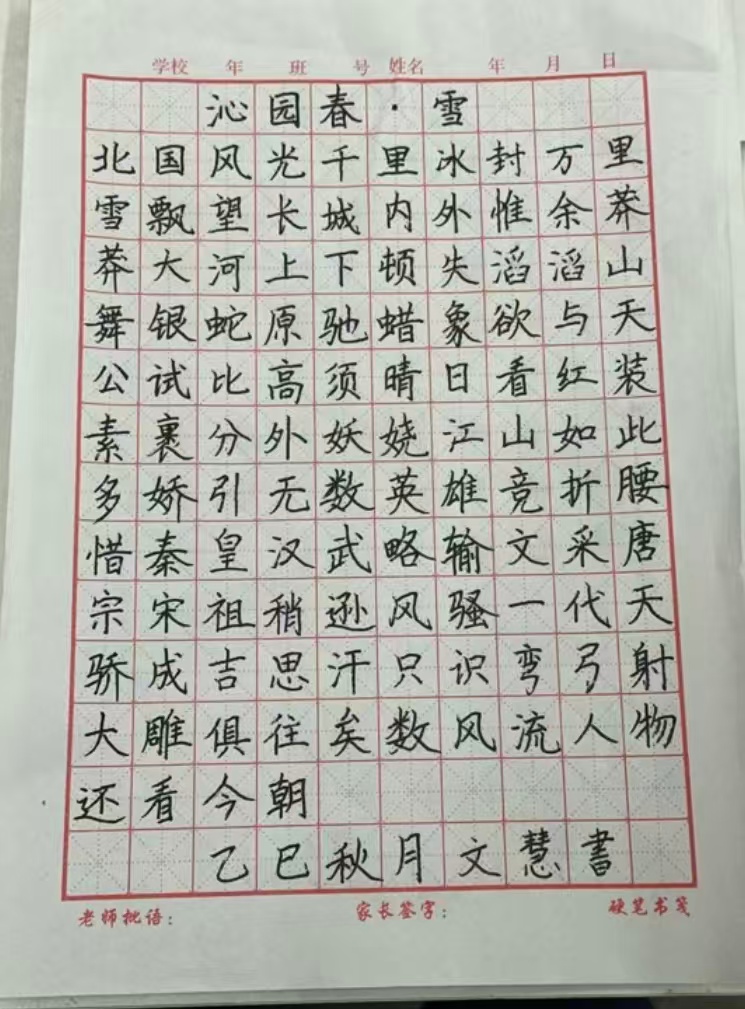 学校 年 班 号 姓名 年 月 日
沁园春·雪
北国风光千里冰封万里
雪飘望长城内外惟余莽
莽大河上下顿失滔滔山
舞银蛇原驰蜡象欲与天
公试比高须晴日看红装
素裹分外妖娆江山如此
多娇引无数英雄竞折腰
惜秦皇汉武略输文采唐
宗宋祖稍逊风骚一代天
骄成吉思汗只识弯弓射
大雕俱往矣数风流人物
还看今朝
乙巳秋月文慧書
老师批语： 家长签字： 硬笔书笺